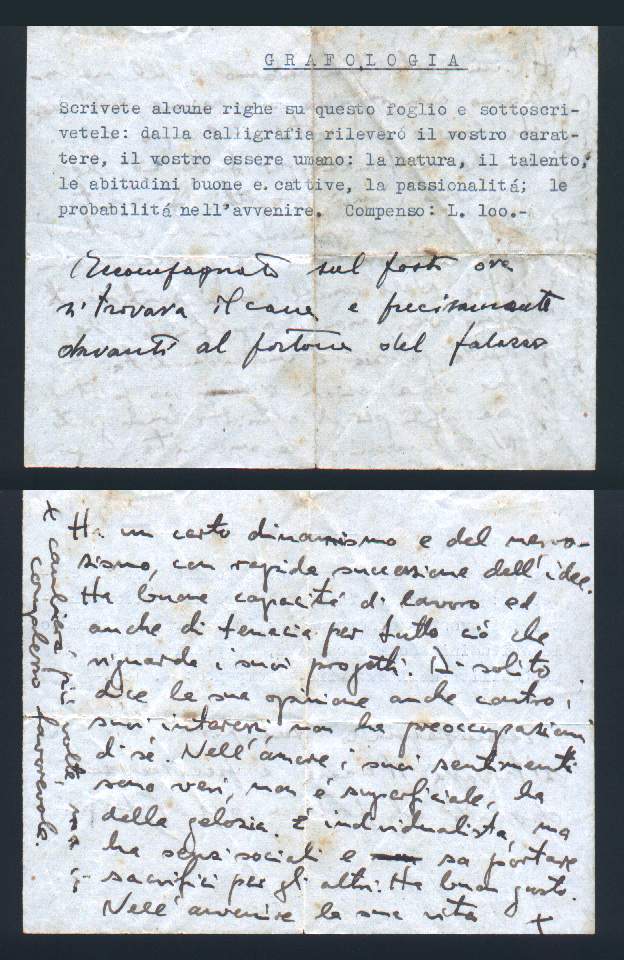 GRAFOLOGIA
Scrivete alcune righe su questo foglio e sottoscri-
vetele: dalla calligrafia rileveró il vostro carat-
tere, il vostro essere umano: la natura, il talento,
le abitudini buone e cattive, la passionalitá; le
probabilitá nell'avvenire. Compenso: L. 100.-
sul posto ove
si trovava il cane e precisamente
davanti al portone del palazzo
Ha un certo dinamismo e del nervo-
sismo, con rapida successione dell'idee.
Ha buone capacitá di lavoro ed
anche di tenacia per tutto ció che
riguarda i suoi progetti. Di solito
dice la sua opinione anche contro i
suoi interessi, non ha preoccupazioni
di sé. Nell'amore i suoi sentimenti
sono veri, non é superficiale, ha
della gelosia. É individualista, ma
ha sensi sociali e sa portare
sacrifici per gli altri. Ha buon gusto.
Nell'avvenire la sua vita x
x cambierá piú volte, ma in
complesso favorevole.